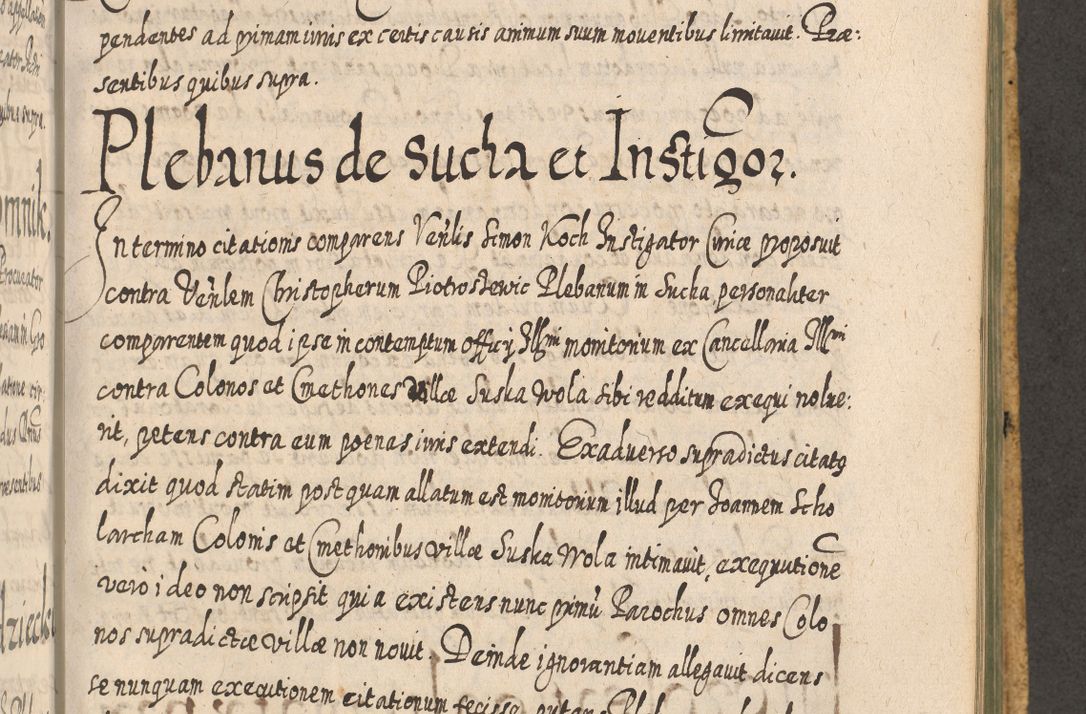 pendentes ad primam iuris ex certis causis animum suum moventibus limitavit. Præ:
sentibus quibus supra.
Plebanus de Sucha et Instigor.
In termino citationis comparens Ven̄lis Simon Koch Instigator Curiæ proposuit
contra Ven̄lem Christopherum Piotrosewic Plebanum in Sucha personaliter
comparentem quod ipse in contemptum officij Illmi monitorium ex Cancellaria Illmi
contra Colonos et Cmethones villæ Suska Wola sibi redditum exequi nolue:
rit, petens contra eum poenas iuris extendi. Ex adverso supradictus citatus
dixit quod statim postquam allatum est monitorium illud per Joannem Scho
larcham Colonis et Cmethonibus villæ Suska Wola intimavit, exequutione
vero ideo non scripsit quia existens nunc primū Parochus omnes Colo
nos supradictæ villæ non novit. Deinde ignorantiam allegavit dicens
se nunquam exequtionem citationum fecisse, putans